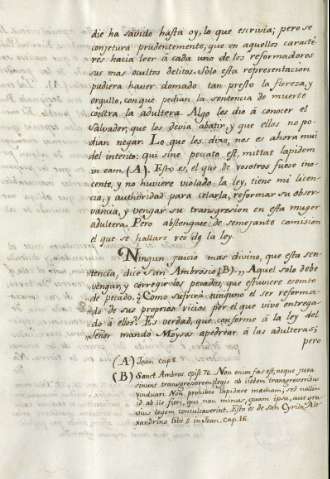 die ha savido hasta oy, lo que escrivia; pero se
conjetura prudentemente, que en aquellos caractè-
res hacia leer á cada uno de los reformadores
sus mas ocultos delitos. Solo esta representacion
pudiera haver domado tan presto la fiereza, y
orgullo, con que pedian la sentencia de muerte
contra la adultera. Algo les dio á conocer el
Salvador, que los devia abatir, y que ellos no po-
dian negar. Lo que les dixo, nos es ahora mui
del intento: qui sine pecato est, mittat lapidem
in eam (A). Esto es, el que de vosotros fuese ino-
cente, y no huviere violado la ley, tiene mi licen-
cia, y authoridad para celarla, reformar su obser-
vancia, y vengar su transgresion en esta muger
adultera. Pero abstengase de semejante comision
el que se hallare reo de la ley.
Ningun juicio mas divino, que esta sen-
tencia, dice San Ambrosio (B). Aquel solo debe
vengar, y corregir los pecados, que estuviere exempto
de pecado. ¿Como sufrirá ninguno el ser reforma-
do de sus proprios vicios por el que vive entrega-
do á ellos? Es verdad, que conforme á la ley del
Señor mando Moyses apedrear á las adulteras;
pero
(A) Joan. cap. 8.
(B) Sanct. Ambros. epist. 76. Non enim fas est, neque jura
sinunt transgressorem legis ab iisdem transgressoribus
Non prohibeo lapidare mulierem; sed nollem
id ab iis fieri, qui non minus, quam ipsa,
legem Esto es de San Cyrilo Ale-
xandrino lib. 5 in Joan. cap. 16.